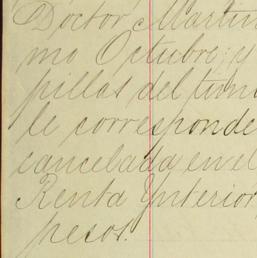 Doctor Martin
mo Octubre; y
pillas del tim
le corresponde
cancelada en el
Renta Ynterior,
pesos.